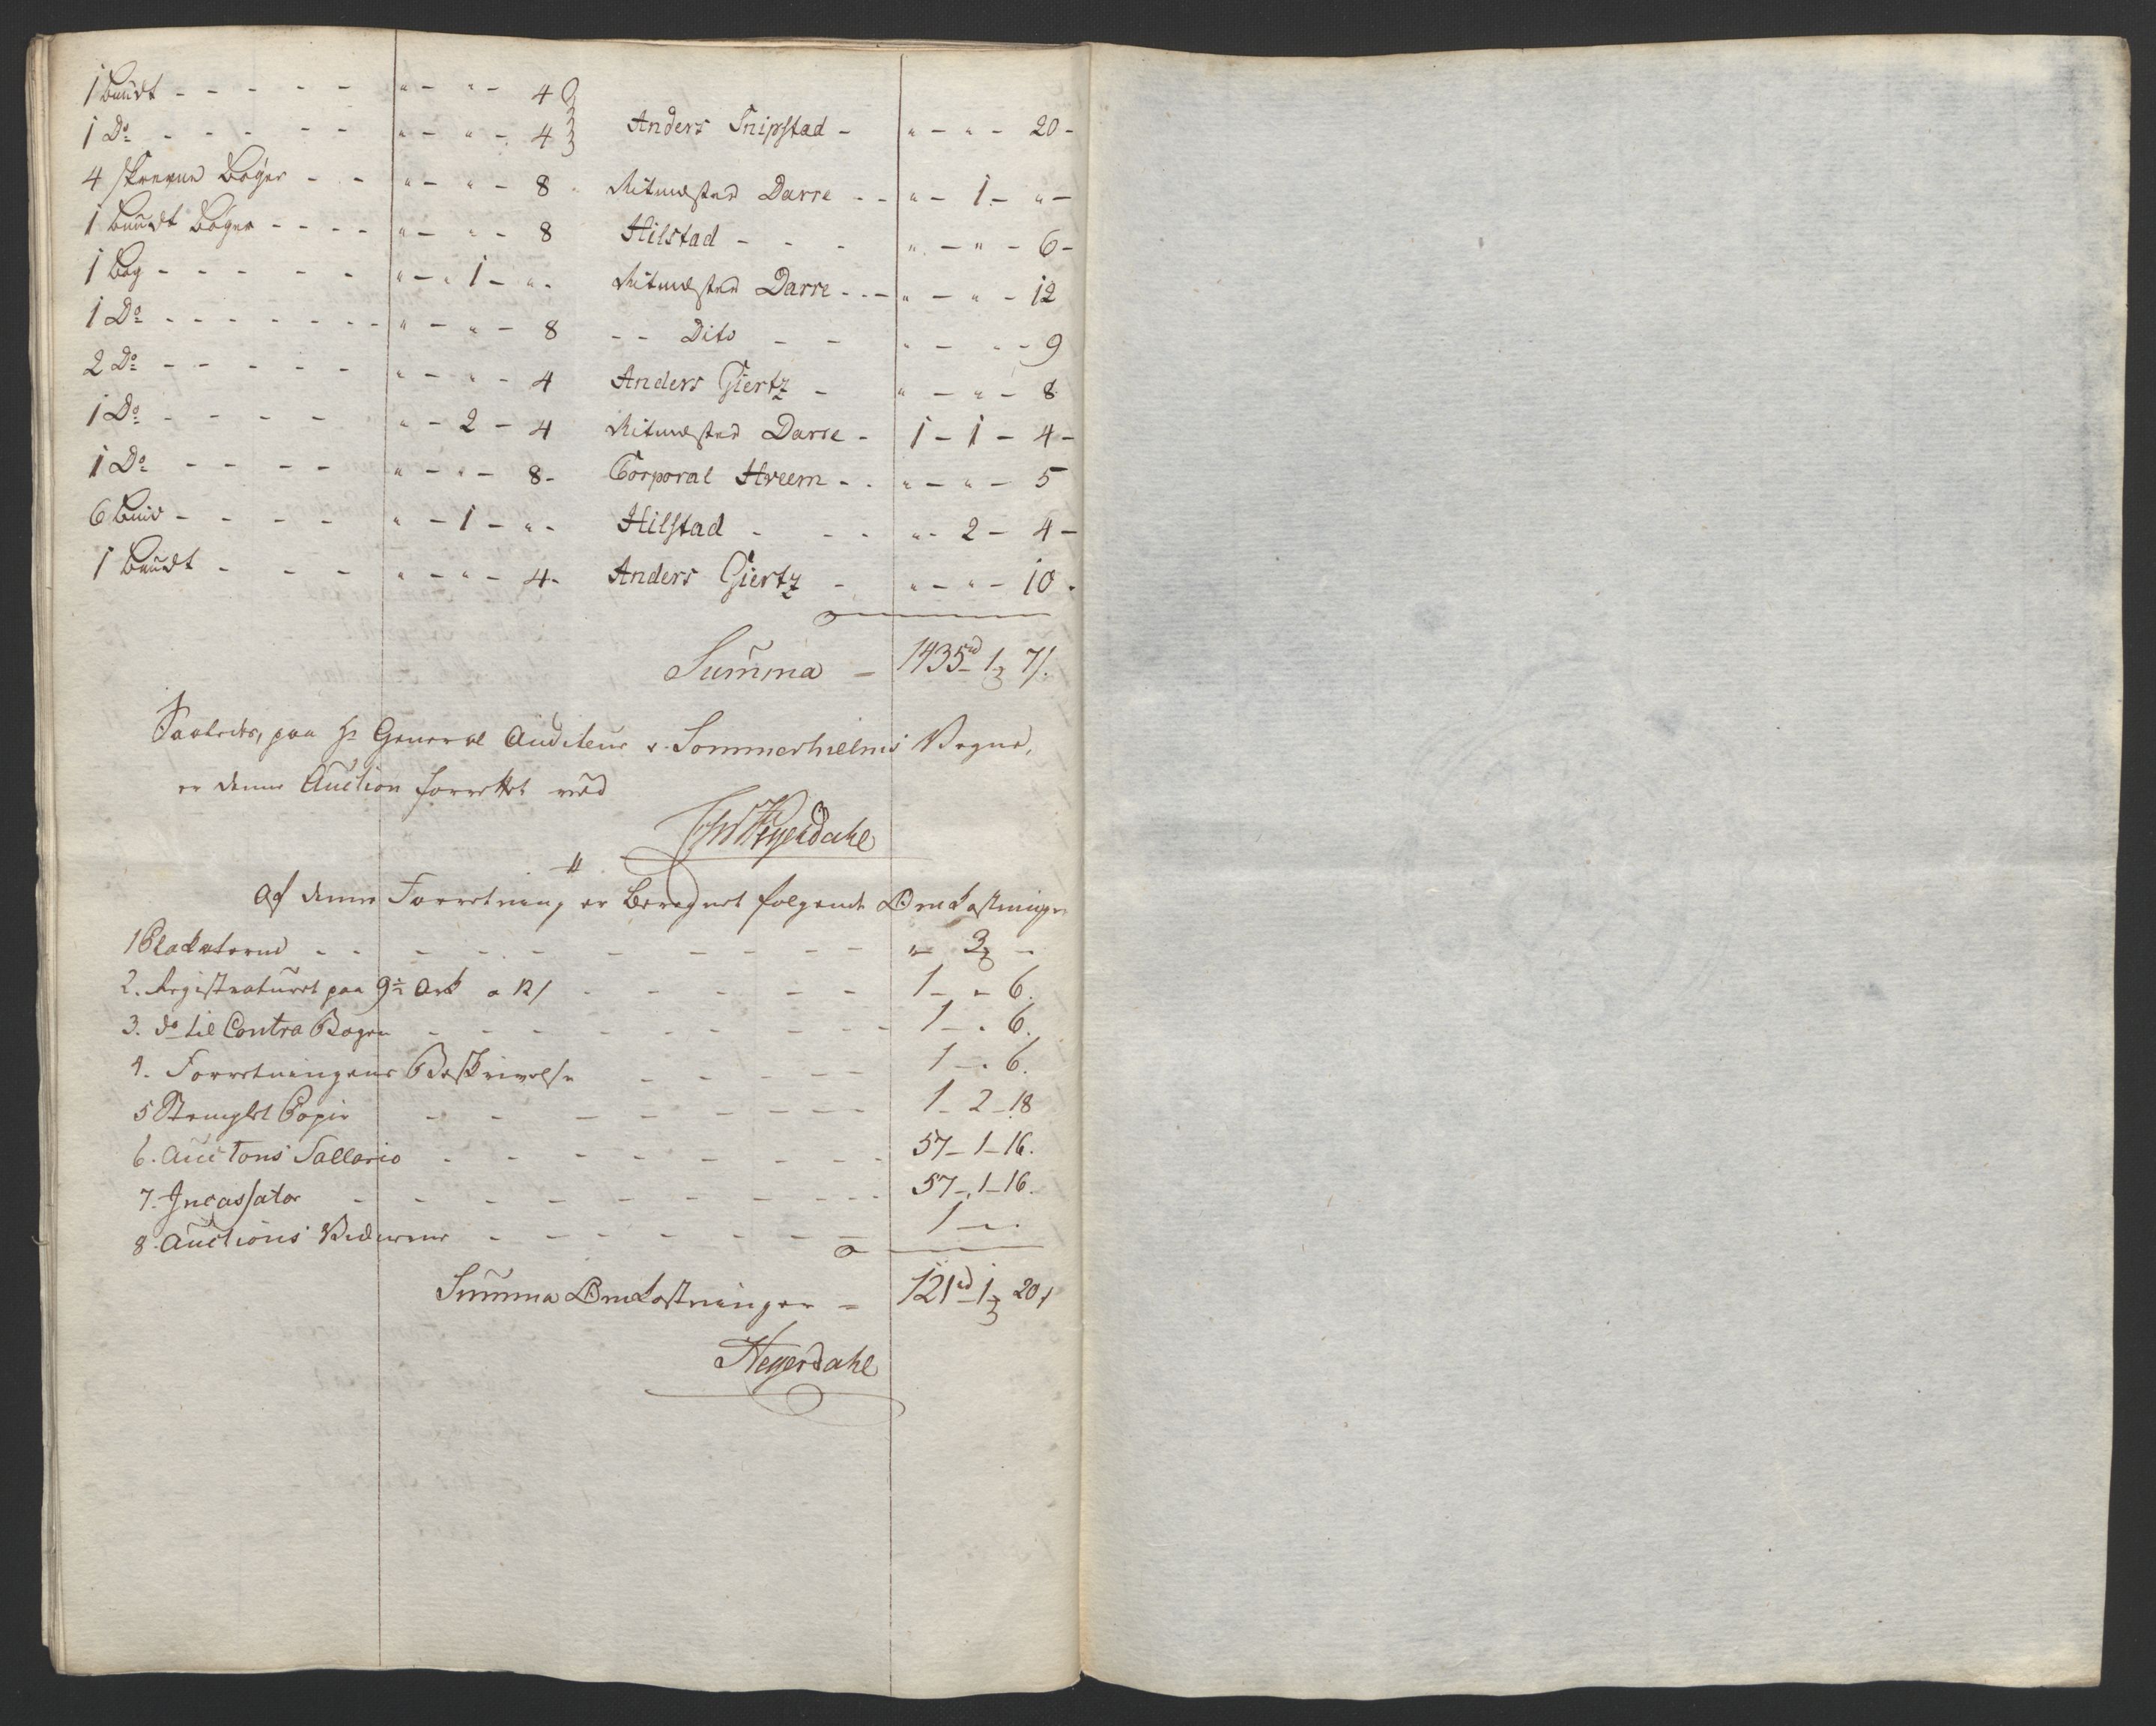 1 Bundt - - - - - " - " - 4
1 Do - - - - - " - " - 4 Anders Snipstad - " - " - 20 -
4 skrevne Bøger - - " - " - 8 Ritmester Darre - - " - 1 - " -
1 Bundt Bøger - - - - " - " - 8 Hilstad - - - " - " - 6 -
1 Bog - - - - - " - 1 - " - Ritmester Darre - - - " - " - 12
1 Do - - - - - - - " - " - 8 - - Dito - - " - " - 9
2 Do - - - - - " - " - 4 Anders Giertz - " - " - 8
1 Do - - - - " - 2 - 4 Ritmester Darre - 1 - 1 - 4 -
1 Do - - - - " - " - 8 - Corporal Hveem - - " - " - 5
6 Bind - - - - " - 1 - " - Hilstad - - - " - 2 - 4 -
1 Bundt - - - " - " - 4 - Anders Giertz - " - " - 10 -
Summa - 1435 rd 1 7 s.
Saaledes, paa Hr General Auditeur v. Sommerhielms Vegne,
er denne Auction forrettet ved
Heyerdahl
Af denne Forretning er beregnet følgende Omkostninger
1 Placaterne - - - - - - - - " 3 -
2. Registraturet paa 9½ Ark a 12 s - - - - - 1 - " - 6.
3. do til Contra Bogen - - - - - - - - 1 - " 6.
4. Forretningens Beskrivelse - - - - - 1 - " 6.
5 Stemplet Papir - - - - - - - 1 - 2 - 18
6. Auctions Sallario - - - - - - - - 57 - 1 - 16.
7. Incassator - - - - - - - - - 57 - 1 - 16.
8. Auctions Vidnerne - - - - - - - 1 - " .
Summa Omkostninger - 121 rd 1 20 s
Heyerdahl